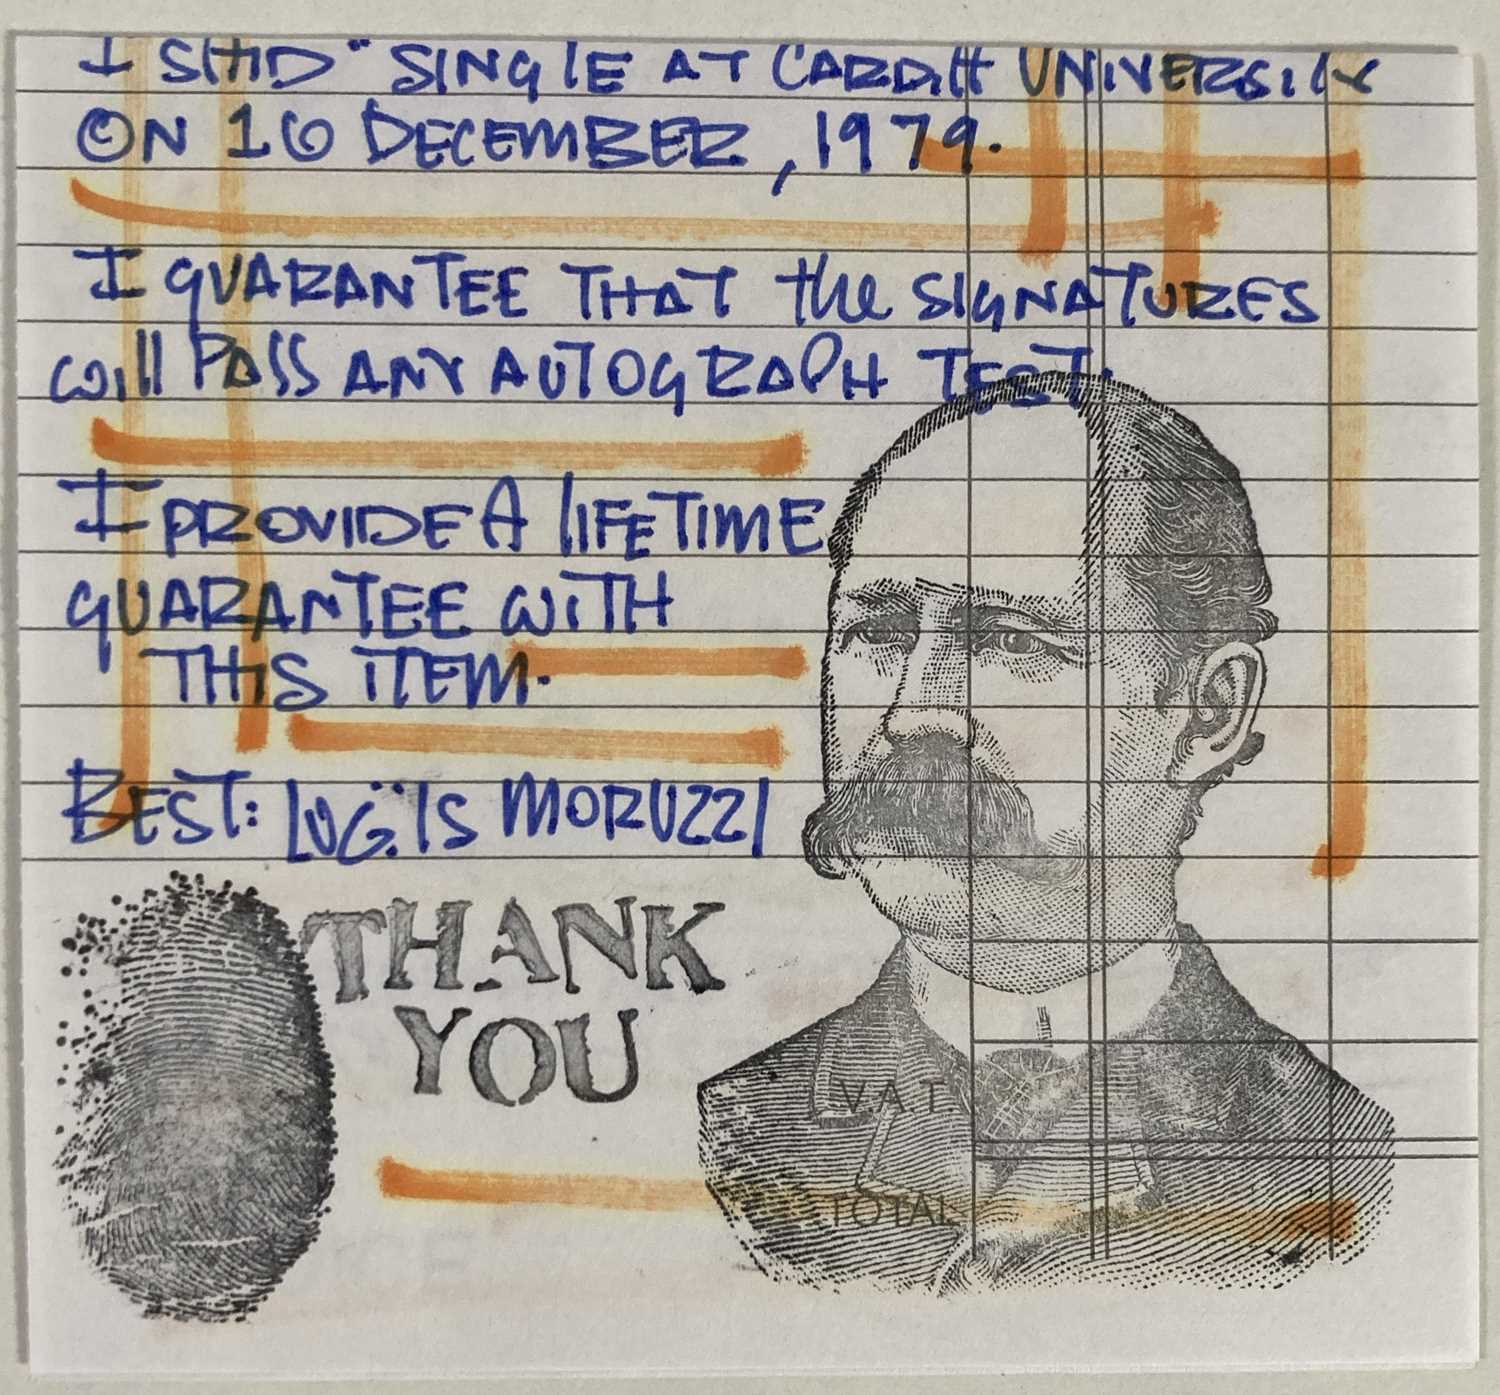 I SINGLE AT CARDIFF UNIVERSITY
ON 16 DECEMBER, 1979.
I GUARANTEE THAT the SIGNATURES
will PASS ANY AUTOGRAPH TEST.
I PROVIDE A lIFETIME
GUARANTEE WITH
THIS ITEM.
BEST: MORUZZI
THANK
YOU
V.A.T.
TOTAL